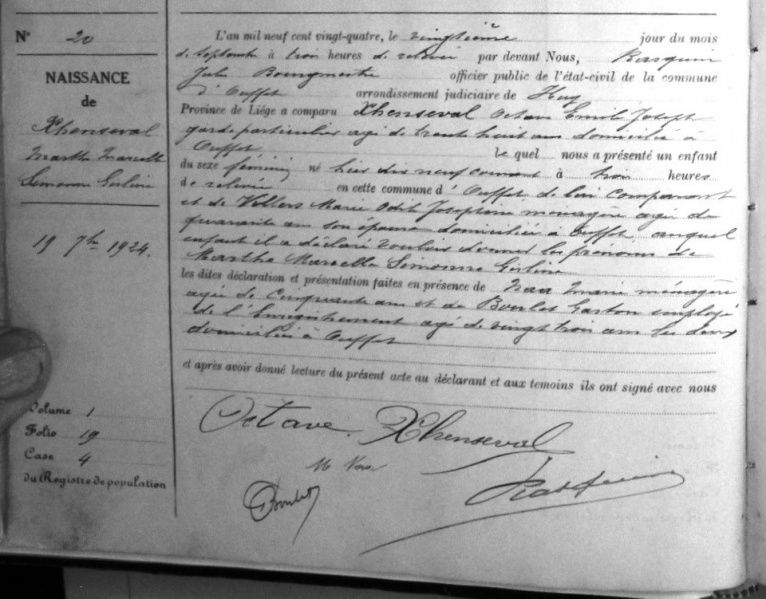 N° 20
NAISSANCE
de
Xhenseval
Marthe Marcelle
Simonne Ghislaine
19 7bre 1924.
Volume 1
Folio 19
Case 4
du Registre de population
L'an mil neuf cent vingt-quatre, le vingtième jour du mois
de Septembre à trois heures de relevée par devant Nous, Rasquin
Jules Bourgmestre officier public de l'état-civil de la commune
d'Ouffet arrondissement judiciaire de Huy
Province de Liége a comparu Xhenseval Octave Emile Joseph
garde particulier agé de trente huit ans domicilié à
Ouffet lequel nous a présenté un enfant
du sexe féminin né hier dix neuf courant à trois heures
de relevée en cette commune d'Ouffet de lui comparant
et de Marie Odile Joséphine ménagère agée de
quarante ans son épouse domiciliée à Ouffet auquel
enfant il a déclaré vouloir donner les prénoms de
Marthe Marcelle Simonne Ghislaine
les dites déclaration et présentation faites en présence de Marie ménagère
agée de Cinquante ans et de Boulet Gaston employé
de l'Enregistrement agé de vingt trois ans les deux
domiciliés à Ouffet
et après avoir donné lecture du présent acte au déclarant et aux temoins ils ont signé avec nous
Octave Xhenseval
M
GBoulet
Rasquin